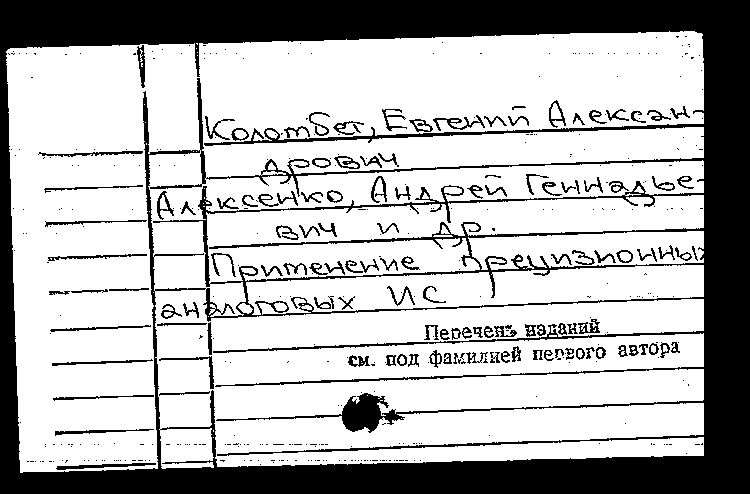 Коломбет, Евгений Алексан-
дрович
Алексенко, Андрей Геннадье-
вич и др.
Применение прецизионных
аналоговых ИС
Перечень изданий
см. под фамилией первого автора